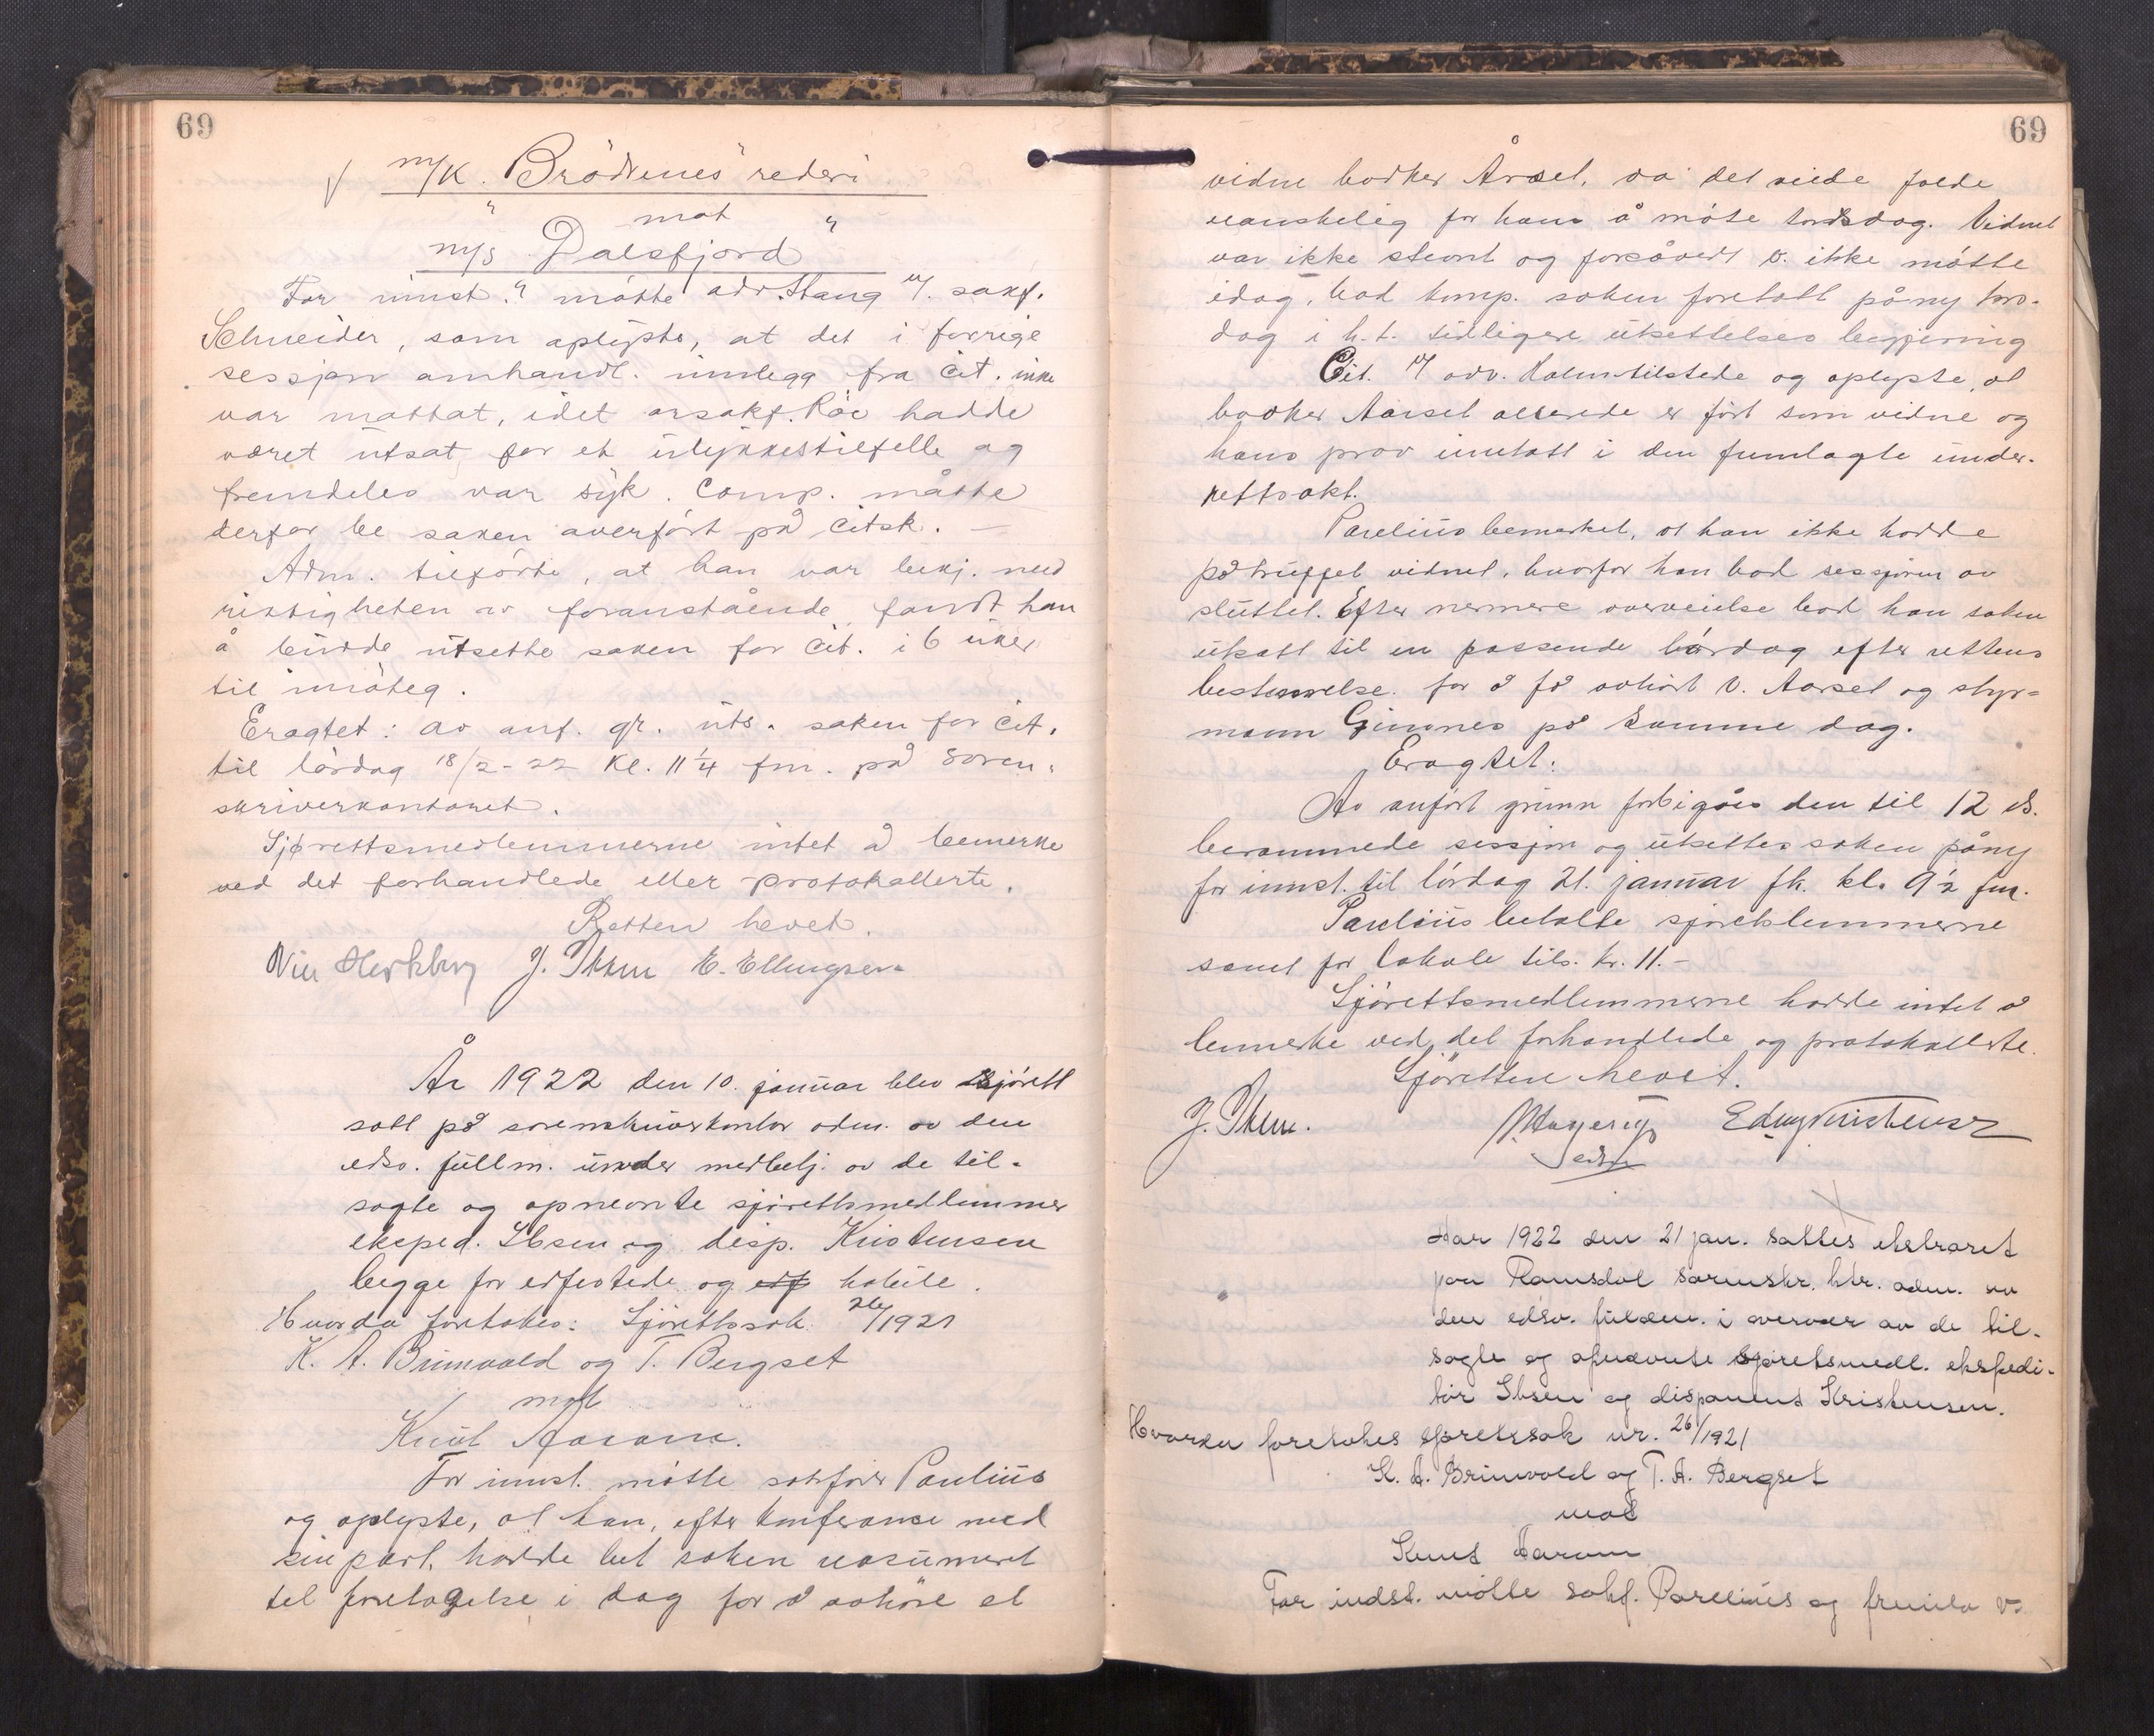 69
m/k. "Brödrenes" rederi
mot
m/s "Dalsfjord"
For innst. møtte adv. Stang v/. sakf.
Schneider, som oplyste, at det i forrige
sessjon omhandl. innlegg fra cit. ikke
var mottat, idet orsakf. Röe hadde
været utsat for et ulykkestilfelle og
fremdeles var syk. Comp. måtte
derfor be saken averført på citsk. —
Adm. tilførte, at han var bekj. med
riktigheten av foranstående, fandt han
å burde utsette saken for cit. i 6 uker
til imøteg.
Eragtet: av anf. gr. uts. saken for cit.
til lördag 18/2-22 Kl. 11 1/4 fm. på soren-
skriverkontoret.
Sjørettsmedlemmerne intet å bemerke
ved det forhandlede eller protokollerte.
Retten hevet.
J. Ibsen E. Ellingsen
År 1922 den 10. januar blev sjörett
satt på sorenskriverkontor adm. av den
edsv. fullm. under medbetj. av de til-
sagte og opnevnte sjörettsmedlemmer
eksped. Ibsen og disp. Kristensen
begge för edfestede og edf habile.
Hvorda foretokes: Sjörettssak 26/1921
K. A. Brunvold og T. Bergset
mot
Knut Aaram.
For innst. mötte sakförer Parelius
og oplyste, at han, efter konferance med
sin part, hadde bet saken reasumert
til foretagelse i dag for å avhöre et
69
vidne bødker Årset, da det vilde falde
vanskelig for ham å möte torsdag. Vidnet
var ikke stevnt og forsåvidt v. ikke mötte
idag, bad komp. saken foretatt påny tors-
dag i h.t. tidligere utsettelses begjering
Cit. v/ adv. Holm tilstede og oplyste, at
bødker Aarset allerede er fört som vidne og
hans prov inntatt i den fremlagte under-
rettsakt.
Parelius bemerket, at han ikke hadde
påtruffet vidnet, hvorfor han bad sessjonen av
sluttet. Efter nermere overveielse bad han saken
utsatt til en passende lördag efter rettens
bestemmelse for å få avhört V. Aarset og styr-
mann Gimnes på samme dag.
Eragtet:
Av anfört grunn forbigåes den til 12 ds.
berammede sessjon og utsettes saken påny
for innst. til lördag 21. januar fk. kl. 9 1/2 fm.
Parelius betalte sjörettslemmerne
samt for lokale tils. kr. 11.-
Sjörettsmedlemmerne hadde intet å
bemerke ved det forhandlede og protokollerte.
Sjöretten hevet.
J. Ibsen. Edvy Kristensen
Aar 1922 den 21 jan. sattes ekstraret
paa Romsdal sorenskr. ktr. adm. av
den edsv. fuldm. i overvær av de til-
sagte og opnævnte sjøretsmedl. ekspedi-
tör Ibsen og disponent Kristensen.
Hvorda foretokes sjøretssak nr. 26/1921
K. A. Brunvold og T. A. Bergset
mot
Knut Aaram
For indst. mötte sakf. Parelius og